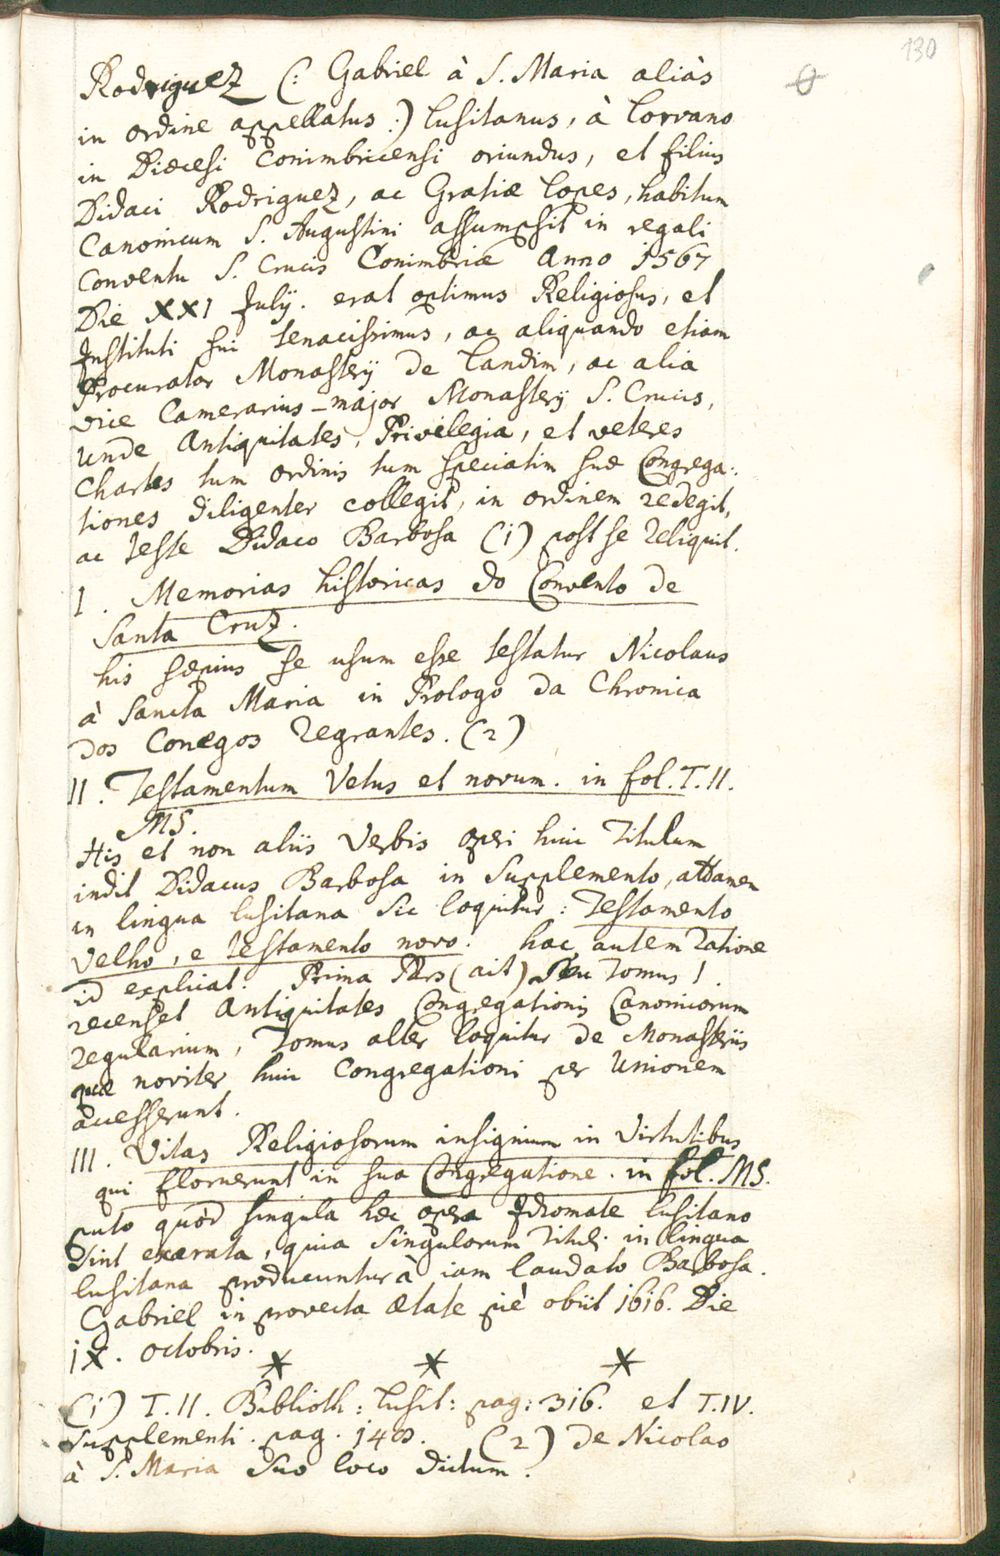 130
Rodriguez (: Gabriel à S. Maria aliàs
in ordine appellatus :) lusitanus, à Lorvano
in Diœcesi Conimbricensi oriundus, et filius
Didaci Rodriguez, ac Gratiæ Lopes, habitum
Canonicum S. Augustini assumpsit in regali
Conventu S. Crucis Conimbriæ Anno 1567
Die XXI Julij. erat optimus Religiosus, et
Instituti sui tenacissimus, ac aliquando etiam
Procurator Monasterij de Landim, ac alia
vice Camerarius-major Monasterij S. Crucis,
unde Antiquitates, Privilegia, et veteres
Chartes tum ordinis tum speciatim suæ Congrega:
tiones diligenter collegit, in ordinem redegit,
ac teste Didaco Barbosa (1) post se reliquit.
I. Memorias historicas do Convento de
Santa Cruz.
his sæpius se usum esse testatur Nicolaus
à Sancta Maria in Prologo da Chronica
dos Conegos Regrantes. (2)
II. Testamentum Vetus et novum. in fol. T. II.
MS.
His et non aliis Verbis operi huic Titulum
indit Didacus Barbosa in Supplemento, attamen
in lingua lusitana sic loquitur: Testamento
velho, e testamento novo. hac autem ratione
id explicat. Prima Pars (ait) seu Tomus I.
recenset Antiquitates Congregationis Canonicorum
regularium, Tomus alter loquitur de Monasteriis
quæ noviter huic Congregationi per Unionem
accesserunt.
III. Vitas Religiosorum insignium in Virtutibus
qui floruerunt in sua Congregatione. in fol. MS.
puto quòd singula hæc opera Idiomate lusitano
sint exarata, quia singulorum Tituli in lingua
lusitana producuntur à iam laudato Barbosa.
Gabriel in provecta ætate piè obiit 1616. Die
IX. octobris.
* * *
(1) T. II. Biblioth: Lusit: pag: 316. et T. IV.
Supplementi. pag. 140. (2) de Nicolao
à S. Maria suo loco dictum.